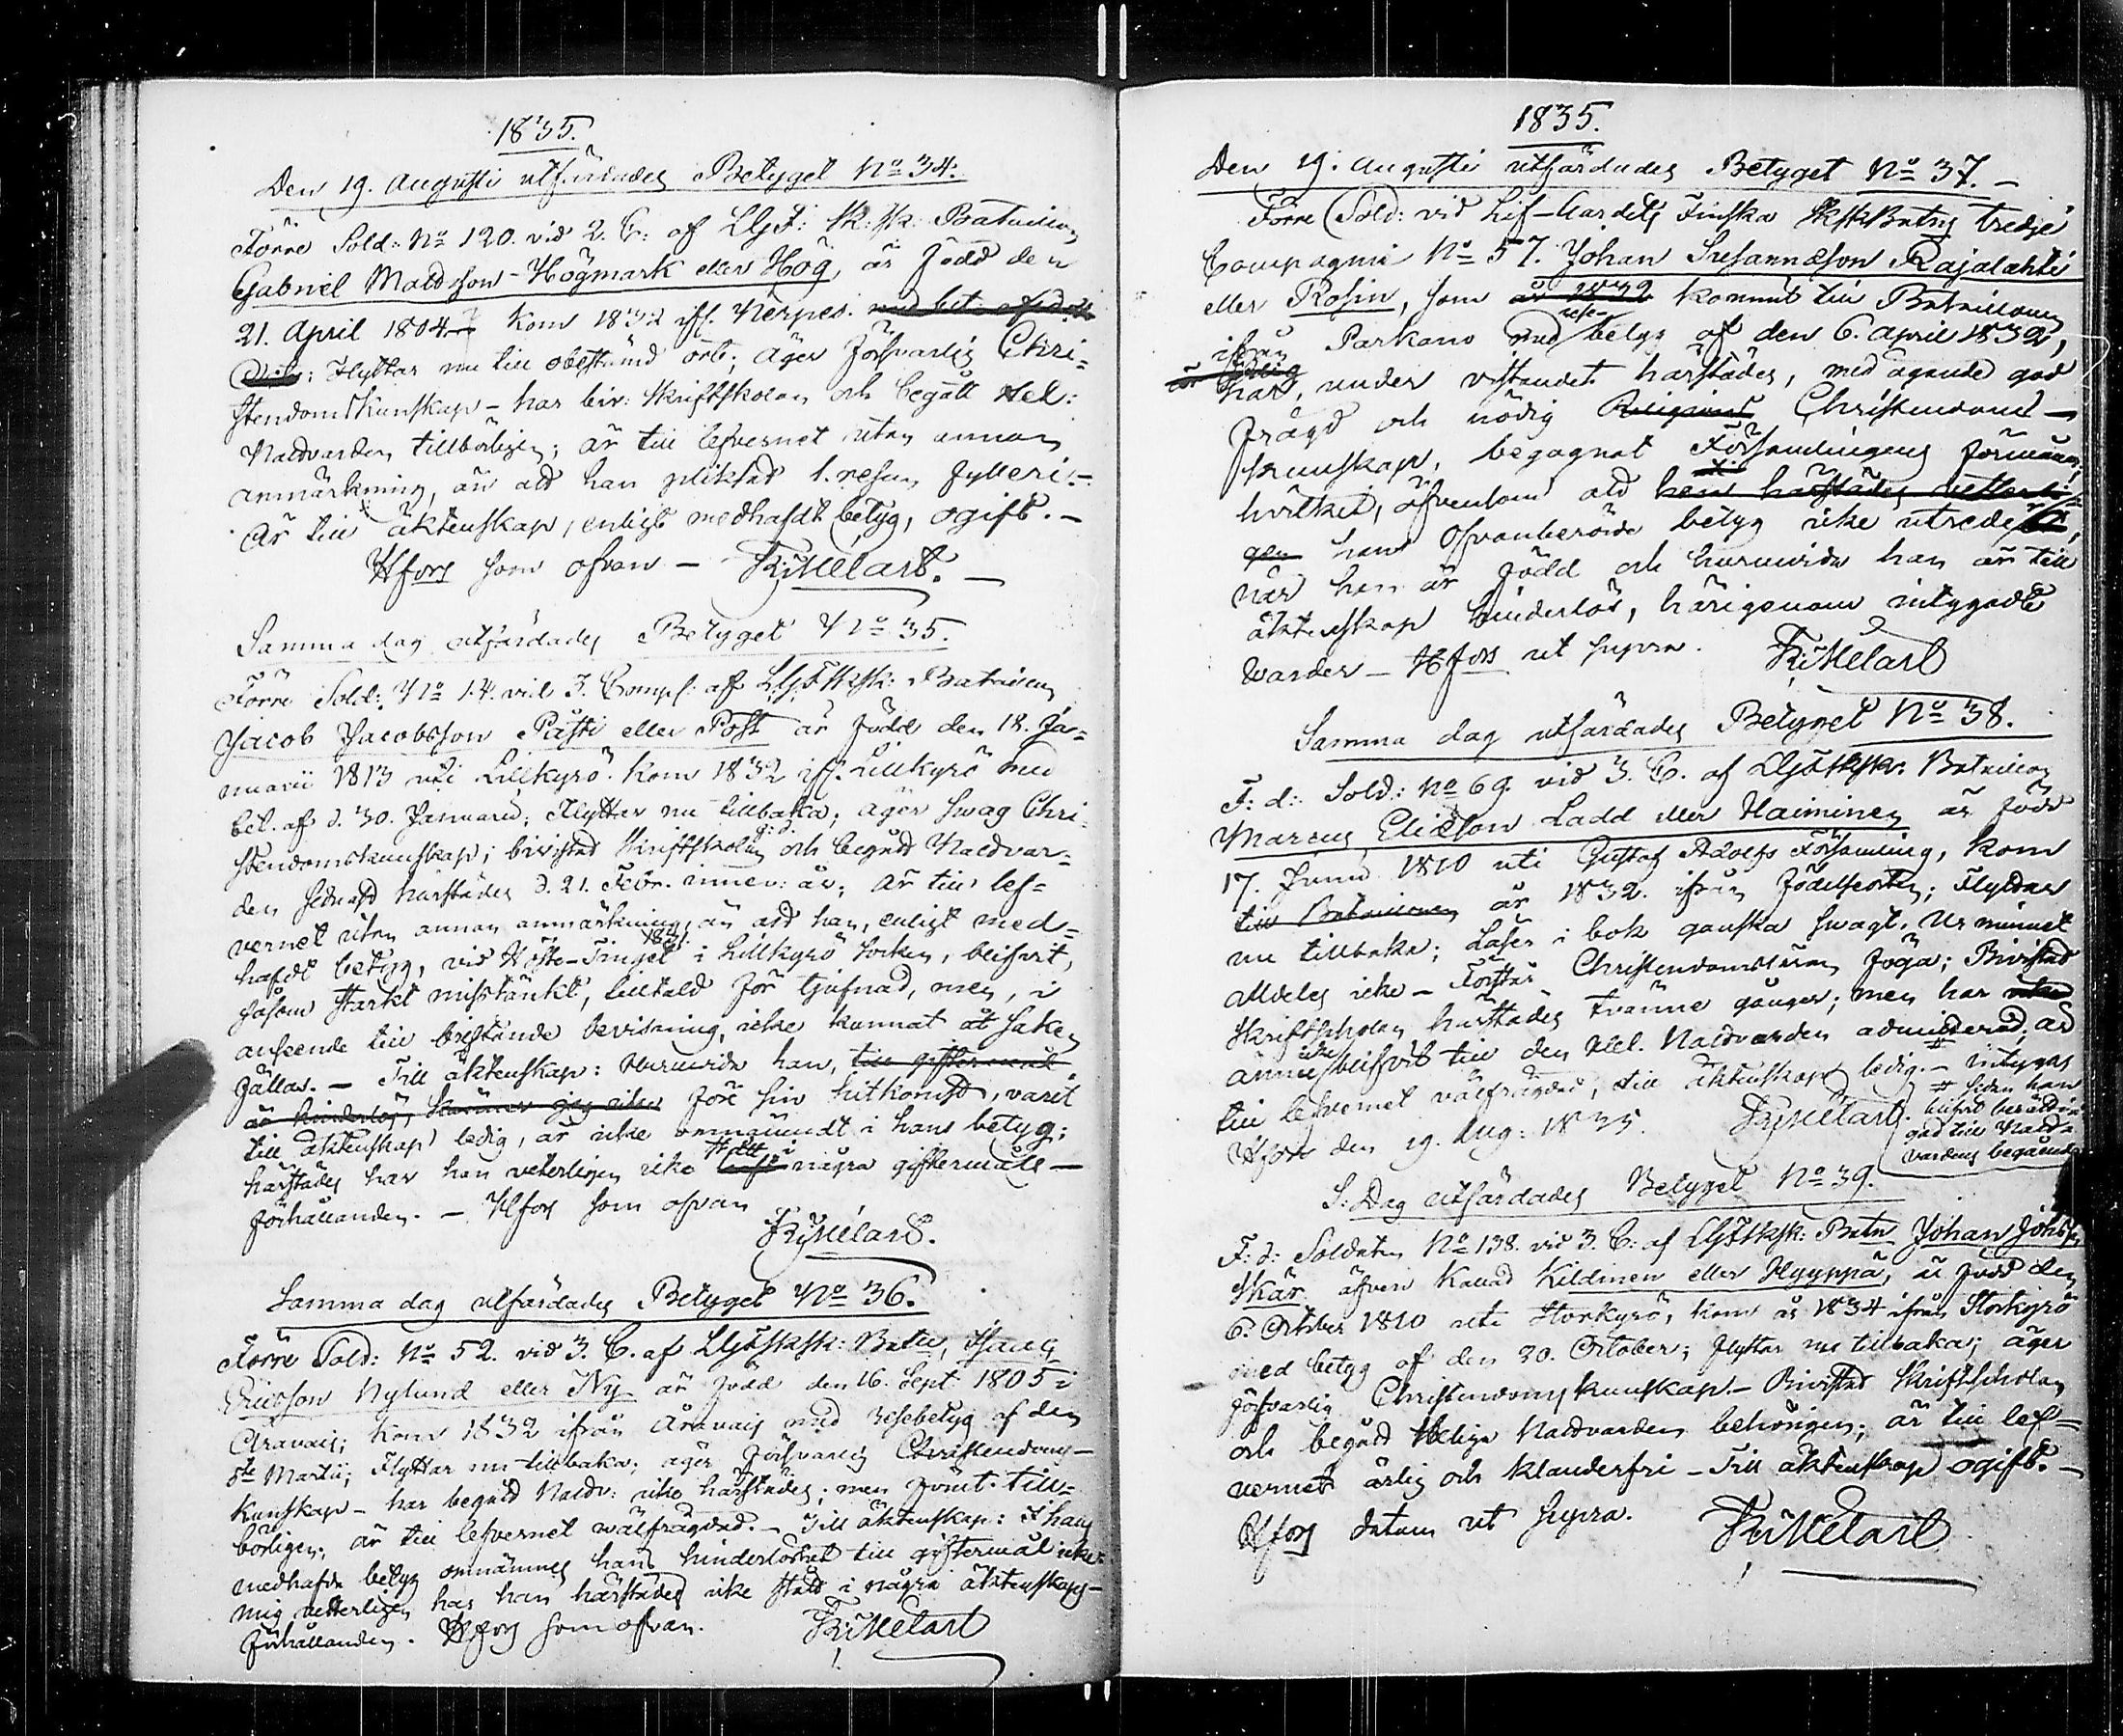 1835.
Den 19. Augusti utfärdades Betyget No 34.
Förre Sold: No 120. vid 2. C: af LGF: Sk: sk: Bataillon
Gabriel Mattsson Högmark eller Hög, är född den
21. April 1804. kom 1832 ifr. Nerpes.
Flyttar nu till obestämd ort; äger försvarlig Chri-
stendomskunskap - har biv: Skriftskolan och begått Hel:
Nattvarden tillbörligen; är till lefvernet utan annan
anmärkning, än att han pliktat 1. resan fylleri.-
Är till äktenskap, enligt medhafdt betyg, ogift. -
Hfors som ofvan - FrMelart. -
Samma dag utfärdades Betyget No 35.
Förre Sold: No 14. vid 3. Comp: af LGFSksk: Bataillon
Jacob Jacobsson Påsti eller Post är född den 18. Ja-
nuarii 1813 uti Lillkyrö. Kom 1832 ifr. Lillkyrö med
bet. af d. 30. Januarii; Flyttar nu tillbaka; äger swag Chri-
stendomskunskap; bivistat Skriftskolan och begått Nattvar-
den sednast härstädes d. 21. Febr. innev: år; är till lef-
vernet utan annan anmärkning, än att han, enligt med-
hafdt betyg, vid Höste-Tinget 1831 i Lillkyrö Socken, blifvit,
såsom starkt misstänkt, tilltald för tjufnad, men, i
anseende till bristande bevisning, icke kunnat åt saken
fällas. - Till äktenskap: Huruvida han, till giftermål
är hinderlös, känner jag icke före sin hitkomst, varit
till äktenskap ledig, är icke omnämndt i hans betyg;
härstädes har han veterligen icke stått i några giftermåls-
förhållanden. - Hfors som ofvan
FrMelart.
Samma dag utfärdades Betyget No 36.
Förre Sold: No 52. vid 3. C. af LGFSksk: Batn, Hans
Ericsson Nylund eller Ny är född den 16. Sept. 1805 i
Oravais; kom 1832 ifrån Oravais med Resebetyg af den
8de Martii; Flyttar nu tillbaka; äger försvarlig Christendoms-
kunskap - har begått Nattv: icke härstädes; men förut till-
börligen; är till lefvernet wälfrägdad. - Till äktenskap: I hans
medhafda betyg omnämnes hans hinderlöshet till giftermål icke:
mig vetterligen har han härstädes icke stått i några äktenskaps-
förhållanden. Hfors som ofvan.
FrMelart
1835.
Den 19. Augusti utfärdades Betyget No 37. -
Förre Sold: vid Lif-Gardets Finska SkskBatns tredje
Compagnie No 57. Johan Susannæson Rajalahti
eller Rosin, som år 1832 kommit till Bataillonen
ifrån Parkano med rese- betyg af den 6. April 1832,
har, under vistandet härstädes, med ägande god
frägd och nödig Religions Christendoms-
kunskap, begagnat Församlingens förmåner;
hvilket, äfvensom att hans härstädes vetterli-
gen hans ofvanberörde betyg icke utreder,
när han är född och huruvida han är till
äktenskap hinderlös, härigenom intygadt
warder - Hfors ut supra. FrMelart
Samma dag utfärdades Betyget No 38.
F: d: Sold: No 69. vid 3. C. af LGFSksk: Bataillon
Marcus Eliæson Ladd eller Haiminen är född
17. Junii 1810 uti Gustaf Adolfs Församling, kom
till Bataillonen år 1832. ifrån födelseorten; Flyttar
nu tillbaka; Läser i bok ganska swagt, Ur minnet
alldeles icke - Förstår Christendomsläran föga; Bivistat
Skriftskolan härstädes tvänne gånger; men har icke
ännu icke blifvit till den Hel. Nattvarden admitterad; är
till lefvernet välfrägdad, till äktenskap ledig. - intygas
Hfors den 19. Aug: 1835. FrMelart.
# sedan han
blifvit berätti-
gad till Natt-
vardens begående
S: Dag utfärdades Betyget No 39.
F: d: Soldaten No 138. vid 3. C: af LGFSksk: Batn Johan Johsson
Skär äfven kallad Kildinen eller Hyyppä, är född den
6. October 1810 uti Storkyrö, kom år 1834 ifrån Storkyrö
med betyg af den 20. October; flyttar nu tillbaka; äger
försvarlig Christendoms kunskap. - Bivistat Skriftskolan
och begått Heliga Nattvarden behörigen; är till lef-
vernet ärlig och klanderfri - Till äktenskap ogift. -
Hfors datum ut supra. FrMelart